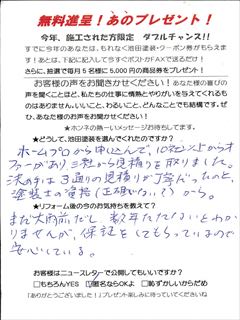 無料進呈！あのプレゼント！
今年、施工された方限定　ダブルチャンス!!
すでに今年のあなたは、もれなく池田塗装・クーポン券がもらえま
す！あとは、下記に記入して今すぐポストかFAXで送るだけ！
さらに、抽選で毎月5名様に5,000円の商品券をプレゼント！
お客様の声をお聞きかせください！
声を聞くことほど、私たちの仕事に情熱とやりがいを与えてくれるも
のはありません。いいこと、わるいこと、どんなことでも結構です。ぜ
ひ、あなた様のお声をお聞かせください！
★ホンネの熱～いメッセージお待ちしてます。
★どうして、池田塗装を選んでくれたのですか？
ホームプロから申し込んで、10社以上からオ
ファーがあり三社から見積りを取りました。
決め手は3通りの見積りが丁寧だったのと、
塗装士の資格（正確でない、？）から。
★リフォーム後の今のお気持ちを教えて？
まだ大雨前だし、数年たたないとわか
りませんが、保証をしてもらっているので
安心している。
お客様はニュースレターで公開してもいいですか？
□もちろんYES　☑匿名ならOKよ　□恥ずかしいからだめ
「ありがとうございました！」プレゼント楽しみに待っていてくださいね